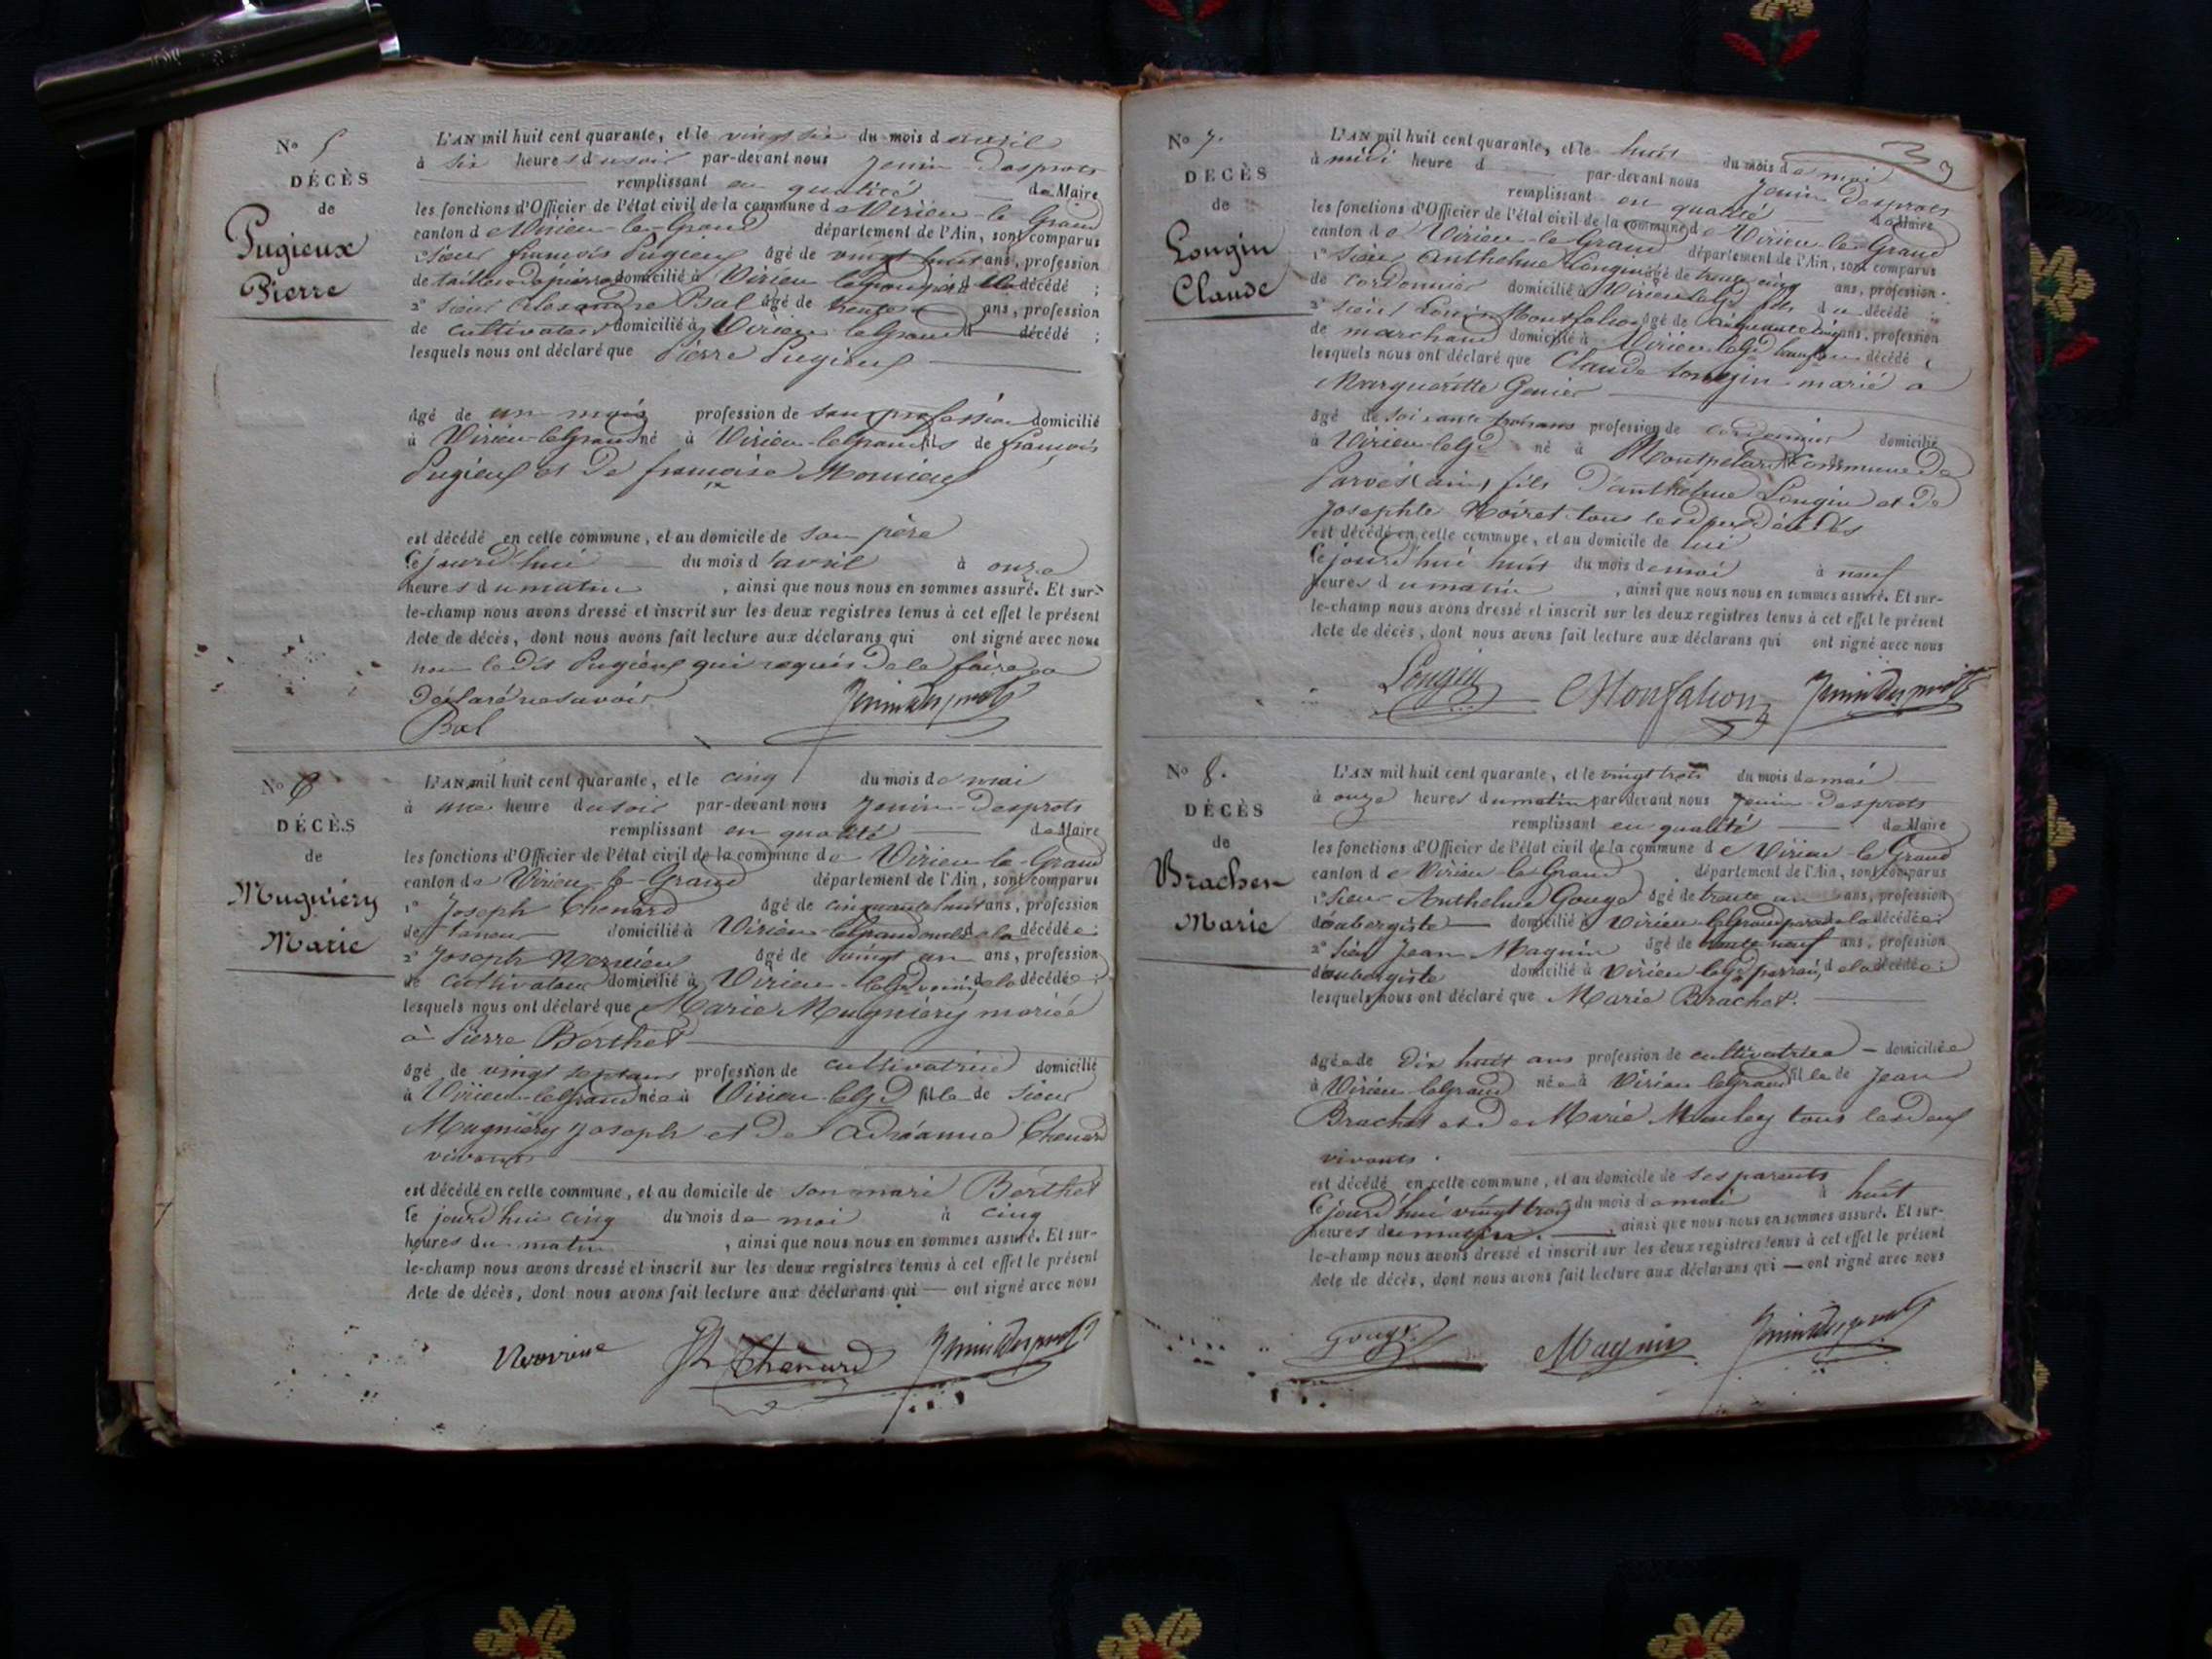 N° 5
DÉCÈS
de
Pugieux
Pierre
L'AN mil huit cent quarante, et le vingt six du mois d'avril
à six heures du soir par-devant nous Jenin Desprots
remplissant en qualité de Maire
les fonctions d'Officier de l'état civil de la commune de Virieu-le-Grand
canton de Virieu-le-Grand département de l'Ain, sont comparus
sieur françois Pugieux âgé de vingt huit ans, profession
de tailleur de pierre domicilié à Virieu legrand père du décédé ;
2° sieur Bal âgé de trente ans, profession
de cultivateur domicilié à Virieu-leGrand décédé ;
lesquels nous ont déclaré que Pierre Pugieux
âgé de un mois profession de sans profession domicilié
à Virieu-leGrand né à Virieu-leGrand fils de françois
Pugieux et de françoise
est décédé en cette commune, et au domicile de son père
Cejourd'hui du mois d'avril à onze
heures du matin , ainsi que nous nous en sommes assuré. Et sur-
le-champ nous avons dressé et inscrit sur les deux registres tenus à cet effet le présent
Acte de décès, dont nous avons fait lecture aux déclarans qui ont signé avec nous
non ledit Pugieux qui requis de le faire a
déclaré ne savoir
Bal Jenin Desprots
N° 6
DÉCÈS
de
Mugniéry
Marie
L'AN mil huit cent quarante, et le cinq du mois de mai
à une heure du soir par-devant nous Jenin-Desprots
remplissant en qualité de Maire
les fonctions d'Officier de l'état civil de la commune de Virieu-le-Grand
canton de Virieu-le-Grand département de l'Ain, sont comparus
1° Joseph Chenard âgé de cinquante huit ans, profession
de taneur domicilié à Virieu-leGrand oncle de la décédée ;
2° Joseph âgé de vingt un ans, profession
de cultivateur domicilié à Virieu-leGd voisin de la décédée ;
lesquels nous ont déclaré que Marie Mugniéry mariée
à Pierre Berthet
âgé de vingt sept ans profession de cultivatrice domicilié
à Virieu-leGrand née à Virieu-leGd fille de sieur
Mugniéry Joseph et de Chenard
vivants
est décédé en cette commune, et au domicile de son mari Berthet
le jourd'hui cinq du mois de mai à cinq
heures du matin , ainsi que nous nous en sommes assuré. Et sur-
le-champ nous avons dressé et inscrit sur les deux registres tenus à cet effet le présent
Acte de décès, dont nous avons fait lecture aux déclarans qui — ont signé avec nous
Chenard Jenin Desprots
39
N° 7.
DÉCÈS
de
Longin
Claude
L'AN mil huit cent quarante, et le huit du mois de mai
à midi heure d par-devant nous Jenin Desprots
remplissant en qualité de Maire
les fonctions d'Officier de l'état civil de la commune de Virieu-le-Grand
canton de Virieu-le-Grand département de l'Ain, sont comparus
1° sieur Anthelme Longin âgé de trente cinq ans, profession
de cordonnier domicilié à Virieu leGd fils du décédé ;
2° sieur Louis Montfalcon âgé de cinquante cinq ans, profession
de marchand domicilié à Virieu leGd décédé ;
lesquels nous ont déclaré que Claude Longin marié à
Margueritte Genier
âgé de soixante trois ans profession de cordonnier domicilié
à Virieu-leGd né à commune de
Parves (ain) fils d'anthelme Longin et de
Josephte Noiret tous les deux décédés
est décédé en cette commune, et au domicile de lui
Cejourd'hui huit du mois de mai à neuf
heures du matin , ainsi que nous nous en sommes assuré. Et sur-
le-champ nous avons dressé et inscrit sur les deux registres tenus à cet effet le présent
Acte de décès, dont nous avons fait lecture aux déclarans qui ont signé avec nous
Longin Monfalcon Jenin Desprots
N° 8.
DÉCÈS
de
Brachet
Marie
L'AN mil huit cent quarante, et le vingt trois du mois de mai
à onze heures du matin par-devant nous Jenin-Desprots
remplissant en qualité de Maire
les fonctions d'Officier de l'état civil de la commune de Virieu-le-Grand
canton de Virieu le Grand département de l'Ain, sont comparus
1° sieur Anthelme Gouge âgé de trente un ans, profession
d'aubergiste domicilié à Virieu-leGrand de la décédée ;
2° sieur Jean Magnin âgé de trente neuf ans, profession
d'aubergiste domicilié à Virieu leGd parrain de la décédée ;
lesquels nous ont déclaré que Marie Brachet.
âgée de dix huit ans profession de cultivatrice — domiciliée
à Virieu-leGrand née à Virieu leGrand fille de Jean
Brachet et de Marie tous les deux
vivants.
est décédé en cette commune, et au domicile de ses parents
Cejourd'hui vingt trois du mois de mai à huit
heures du matin. , ainsi que nous nous en sommes assuré. Et sur-
le-champ nous avons dressé et inscrit sur les deux registres tenus à cet effet le présent
Acte de décès, dont nous avons fait lecture aux déclarans qui — ont signé avec nous
Gouge Magnin Jenin Desprots